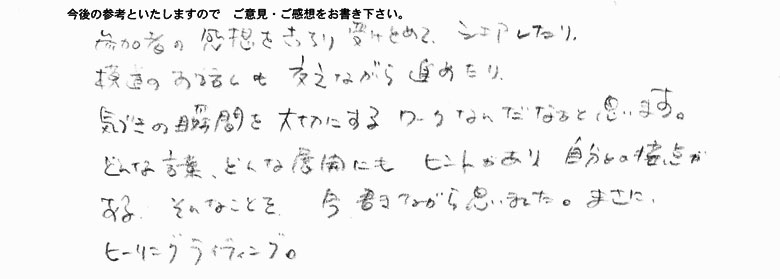 今後の参考といたしますので　ご意見・ご感想をお書き下さい。
参加者の感想をきっちり受けとめて、シェアしたり、
横道のお話しも交えながら進めたり、
気づきの瞬間を大切にするワークなんだなぁと思います。
どんな言葉、どんな展開にもヒントがあり自分との接点が
ある。そんなことを、今書きながら思いました。まさに、
ヒーリングライティング。